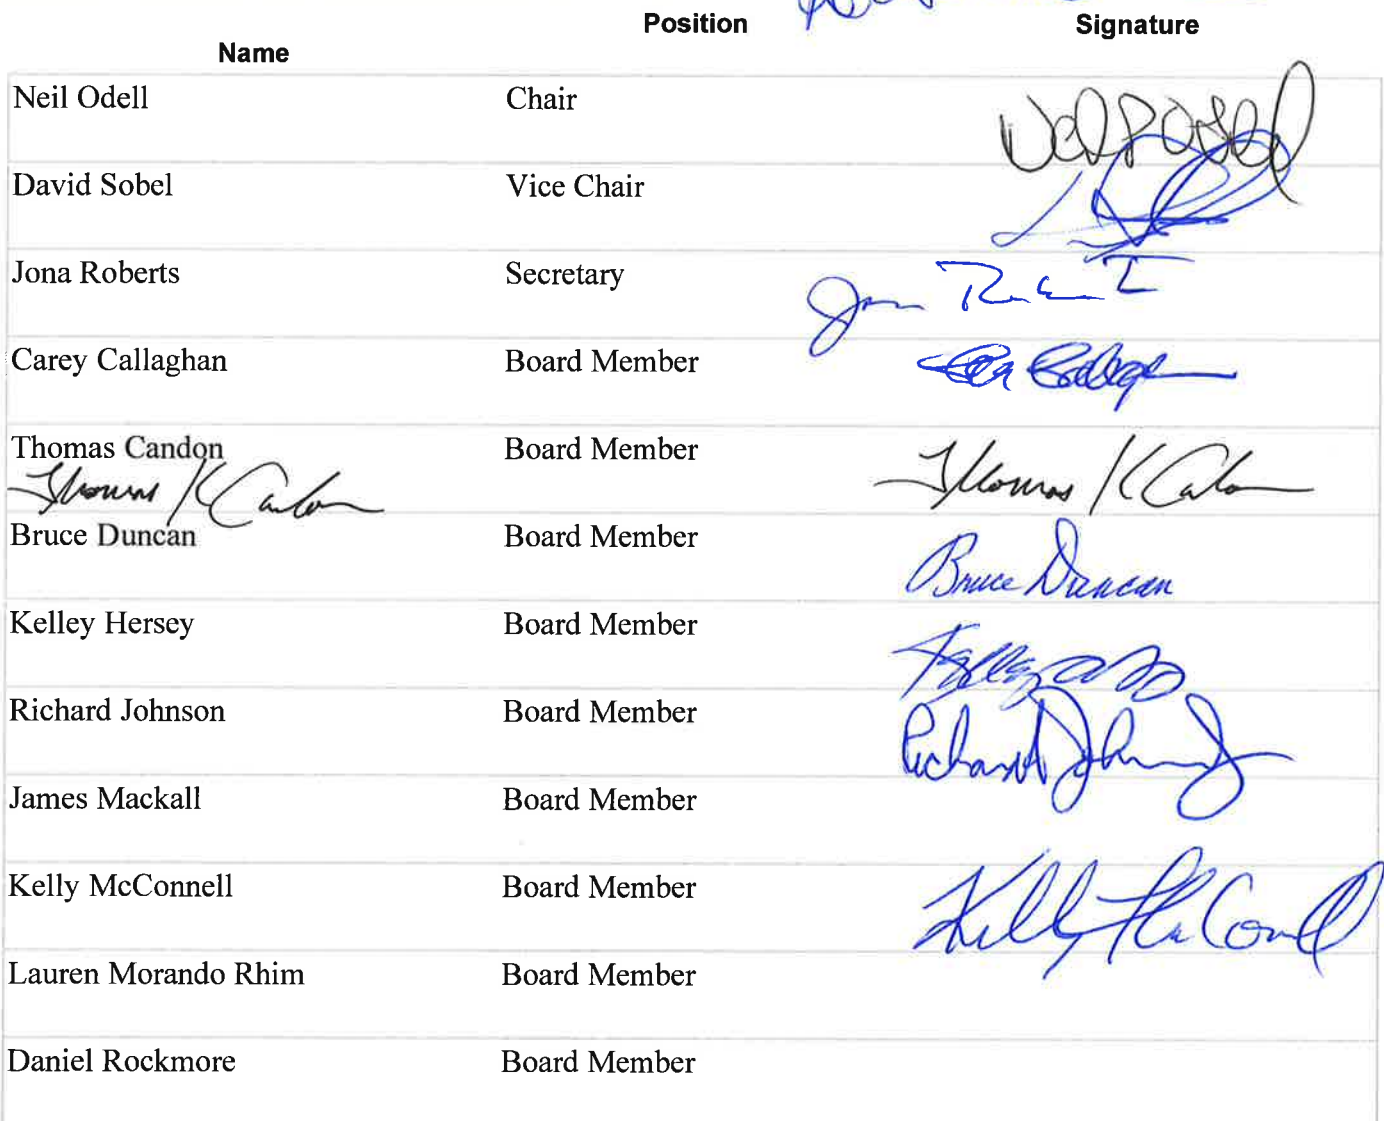 Position Signature
Name
Neil Odell Chair Neil P Odell
David Sobel Vice Chair
Jona Roberts Secretary
Carey Callaghan Board Member
Thomas Candon Board Member
Thomas K Candon Thomas K Candon
Bruce Duncan Board Member Bruce Duncan
Kelley Hersey Board Member Kelley
Richard Johnson Board Member Richard Johnson
James Mackall Board Member
Kelly McConnell Board Member Kelly McConnell
Lauren Morando Rhim Board Member
Daniel Rockmore Board Member